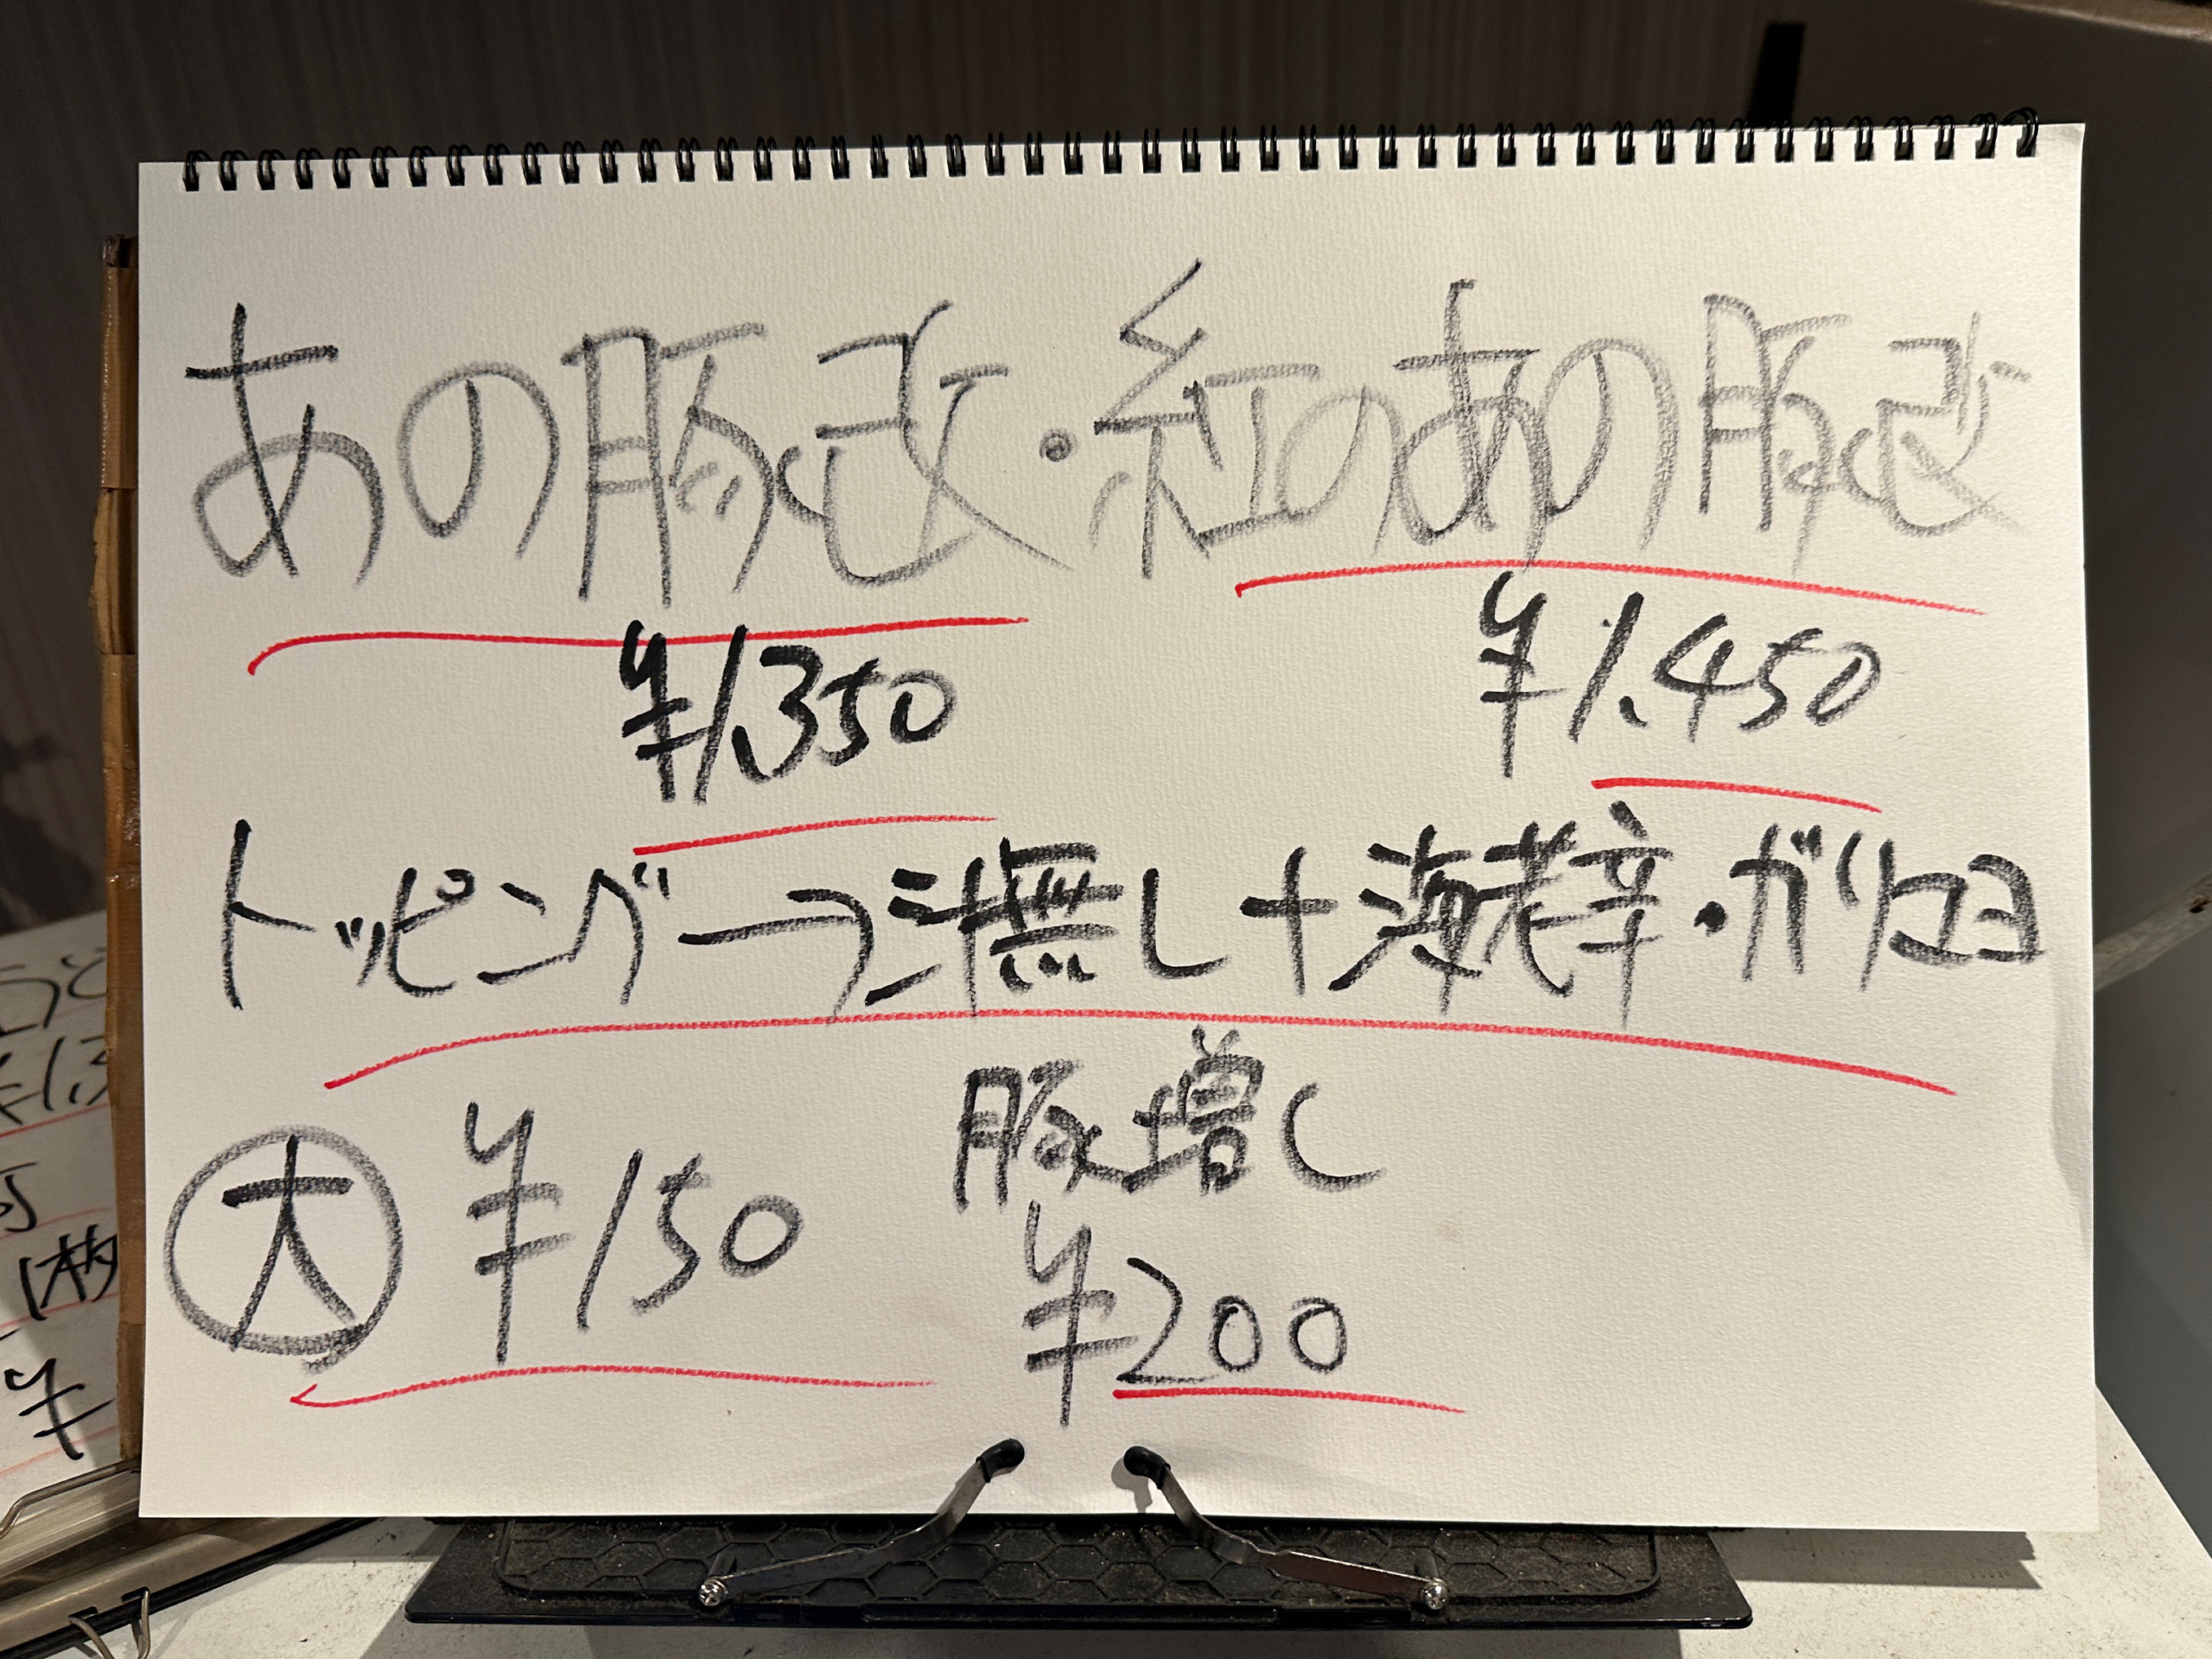 あの豚改・紅のあの豚改
¥1.350
¥1.450
トッピングーラ ニ無し+海老辛・ガリマヨ
豚増し
大 ¥150
¥200